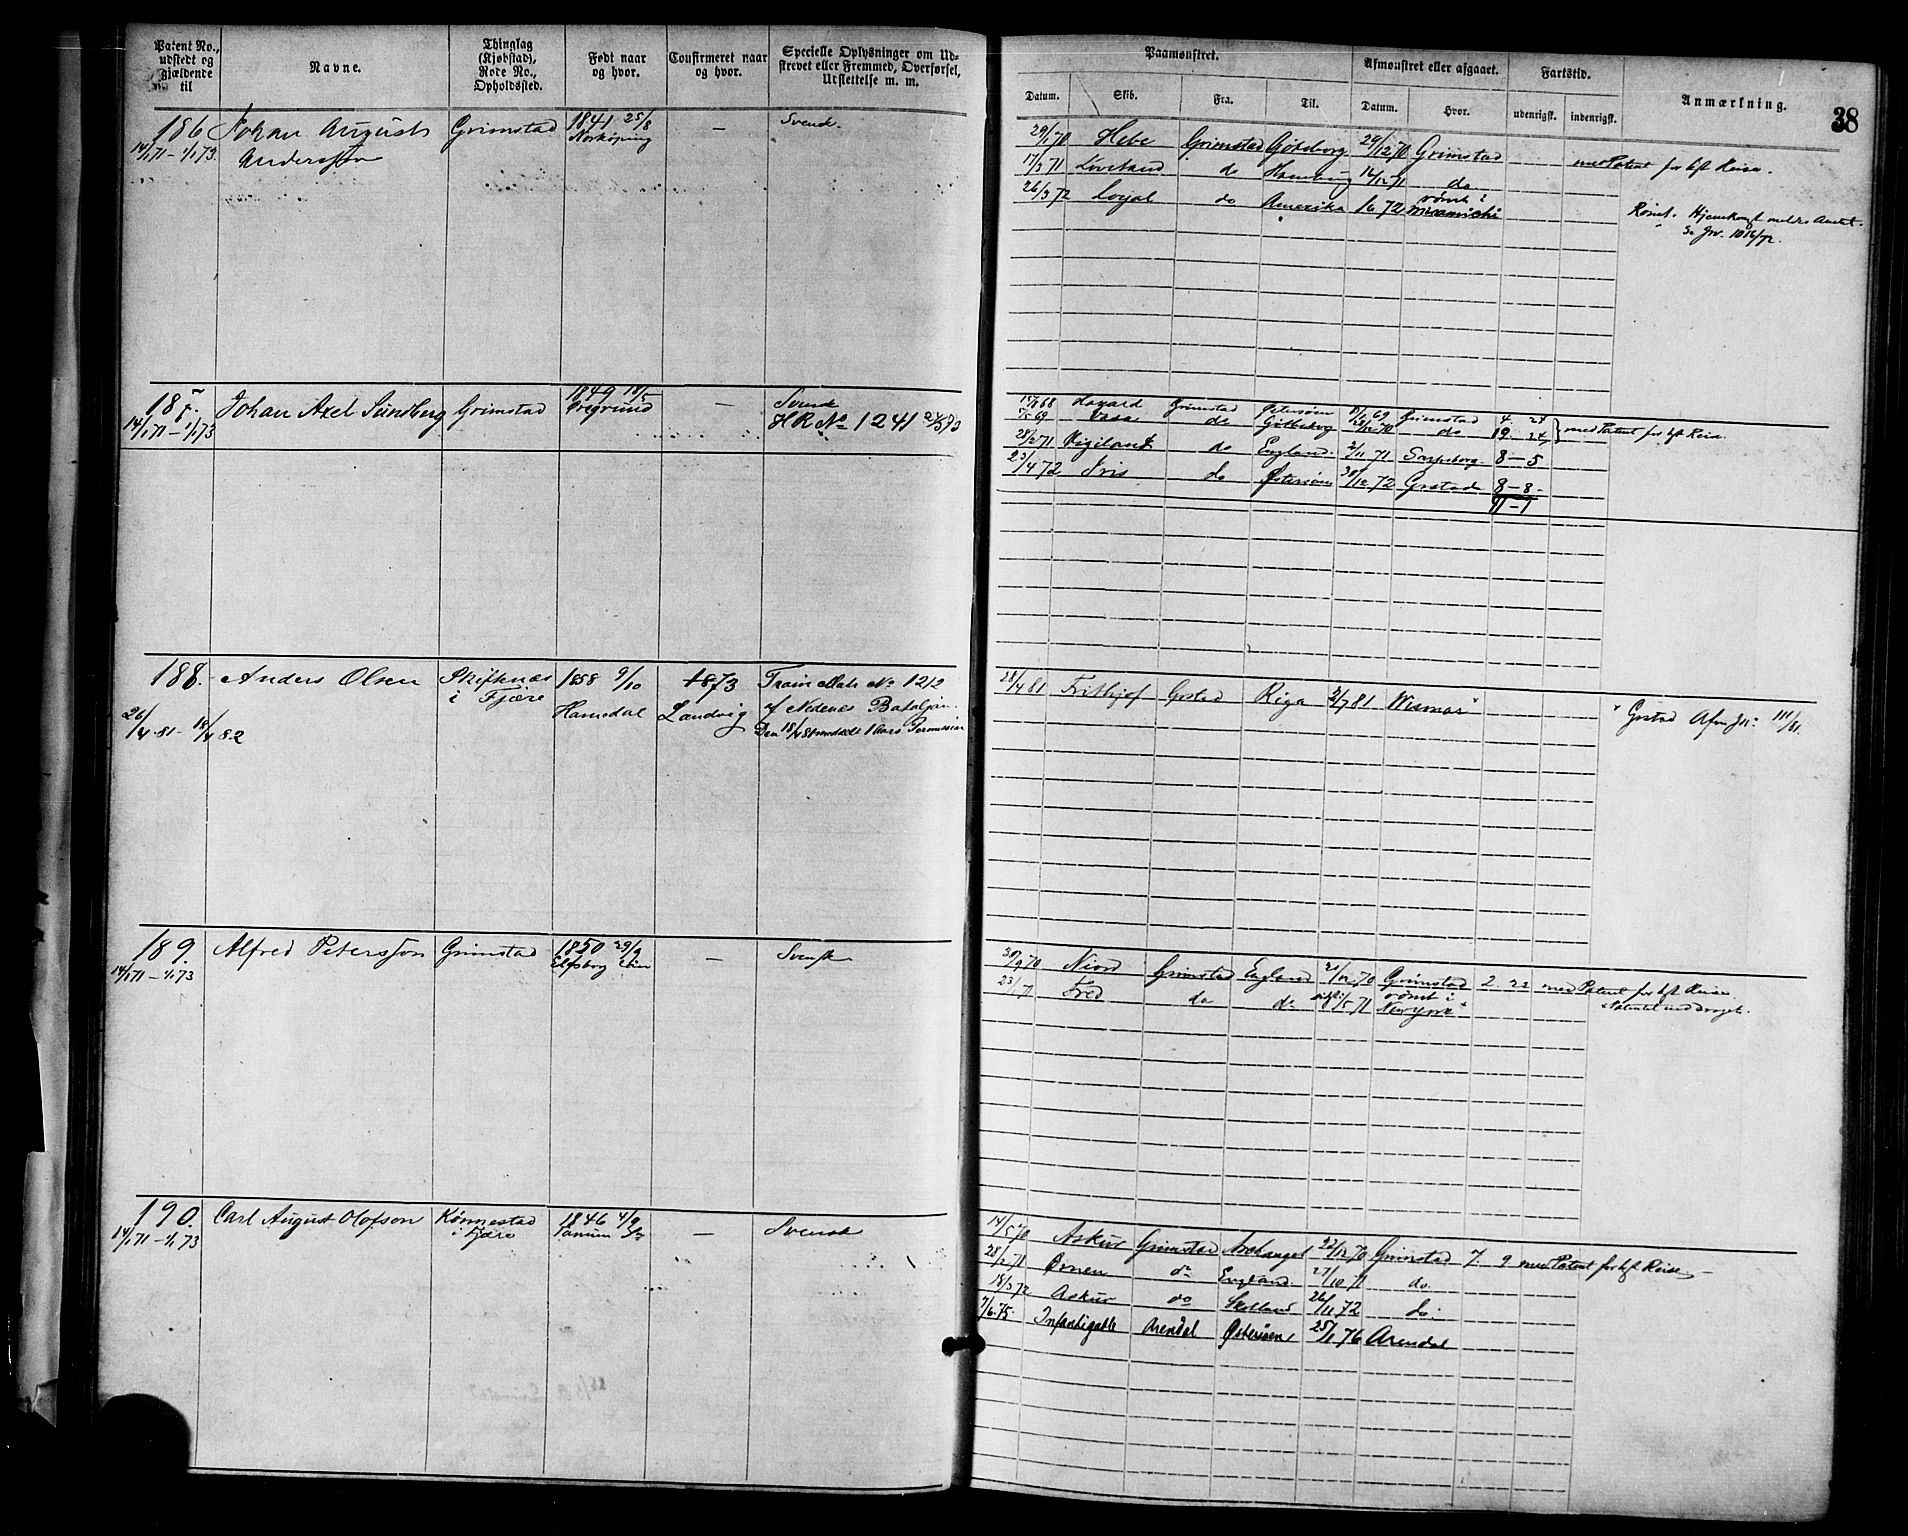 Patent No., udstedt og gjældende til
Navne.
Thinglag (Kjøbstad), Rode No., Opholdssted.
Født naar og hvor.
Confirmeret naar og hvor.
Specielle Oplysninger om Udskrevet eller Fremmed, Overførsel, Utslettelse m. m.
Paamønstret.
Afmønstret eller afgaaet.
Fartstid.
Anmærkning.
38
Datum.
Skib.
Fra.
Til.
Datum.
Hvor.
udenrigsk.
indenrigsk.
186 Johan August Grimstad 1841 25/8 — Svensk.
14/1 71 – 1/1 73. Andersson Norköping
29/1 70 Hebe Grimstad Göteborg 29/12 70 Grimstad med Patent for hft Reise.
17/3 71 Loveland do Hamburg 16/12 71 do
26/3 72 Loyal do Amerika 16 72 rømt i Miramichi
187. Johan Axel Sundberg Grimstad 1849 18/5 — Svensk
14/1 71 – 1/1 73 Öregrund HR No 1241
69 Vasa do Göteborg 70 do 19 24 med Patent for hft Reise.
28/2 71 Vigiland do England. 2/11 71 Sarpsborg 8 – 5
23/4 72 Iris do Østersøen 30/12 72 Grstad 8 – 8
188. Anders Olsen Skifknæs 1858 9/10 1873 Train No 1212
i Fjære Hamsdal Landvig af Nedenes Bataljon.
26/4 81 – 18/4 82 1 Aars Permission
28/4 81 Frithjof Grstad Riga 2/7 81 Wismar
" Grstad Afm Jr: 111/81.
189. Alfred Petersson Grimstad 1850 29/9 — Svensk
14/1 71 – 1/1 73 Elfsborg
30/9 70 Niord Grimstad England 70 Grimstad 2. 22 med Patent for hft Reise.
23/1 71 Fred do do 1/5 71 rømt i New York
190. Carl August Olofson Rønnestad 1846 4/9 — Svensk
14/1 71 – 1/1 73 i Fjære Tanum
14/5 70 Askur Grimstad Archangel 22/12 70 Grimstad 7. 9 med Patent for hft Reise.
28/2 71 Ørnen do England. 27/10 71 do.
18/3 72 Askur do Skotland 26/11 72 do.
7/6 75 Infantigable Arendal Østersøen 25/1 76 Arendal